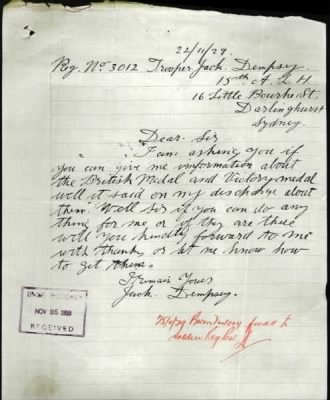 22/11/29.
Reg. No 3012 Trooper Jack. Dempsey.
15th A. L. H
16 Little Bourke St.
Darlinghurst
Sydney.
Dear Sir
I am asking you if
you can give me information about
the British Medal and Victory medal
well it said on my discharge about
them. Well Sir if you can do any
thing for me or if they are there
will you kindly forward to me
with thanks or let me know how
to get them.
I Remain Yours
Jack. Dempsey.
NOV 25 1929
RECEIVED